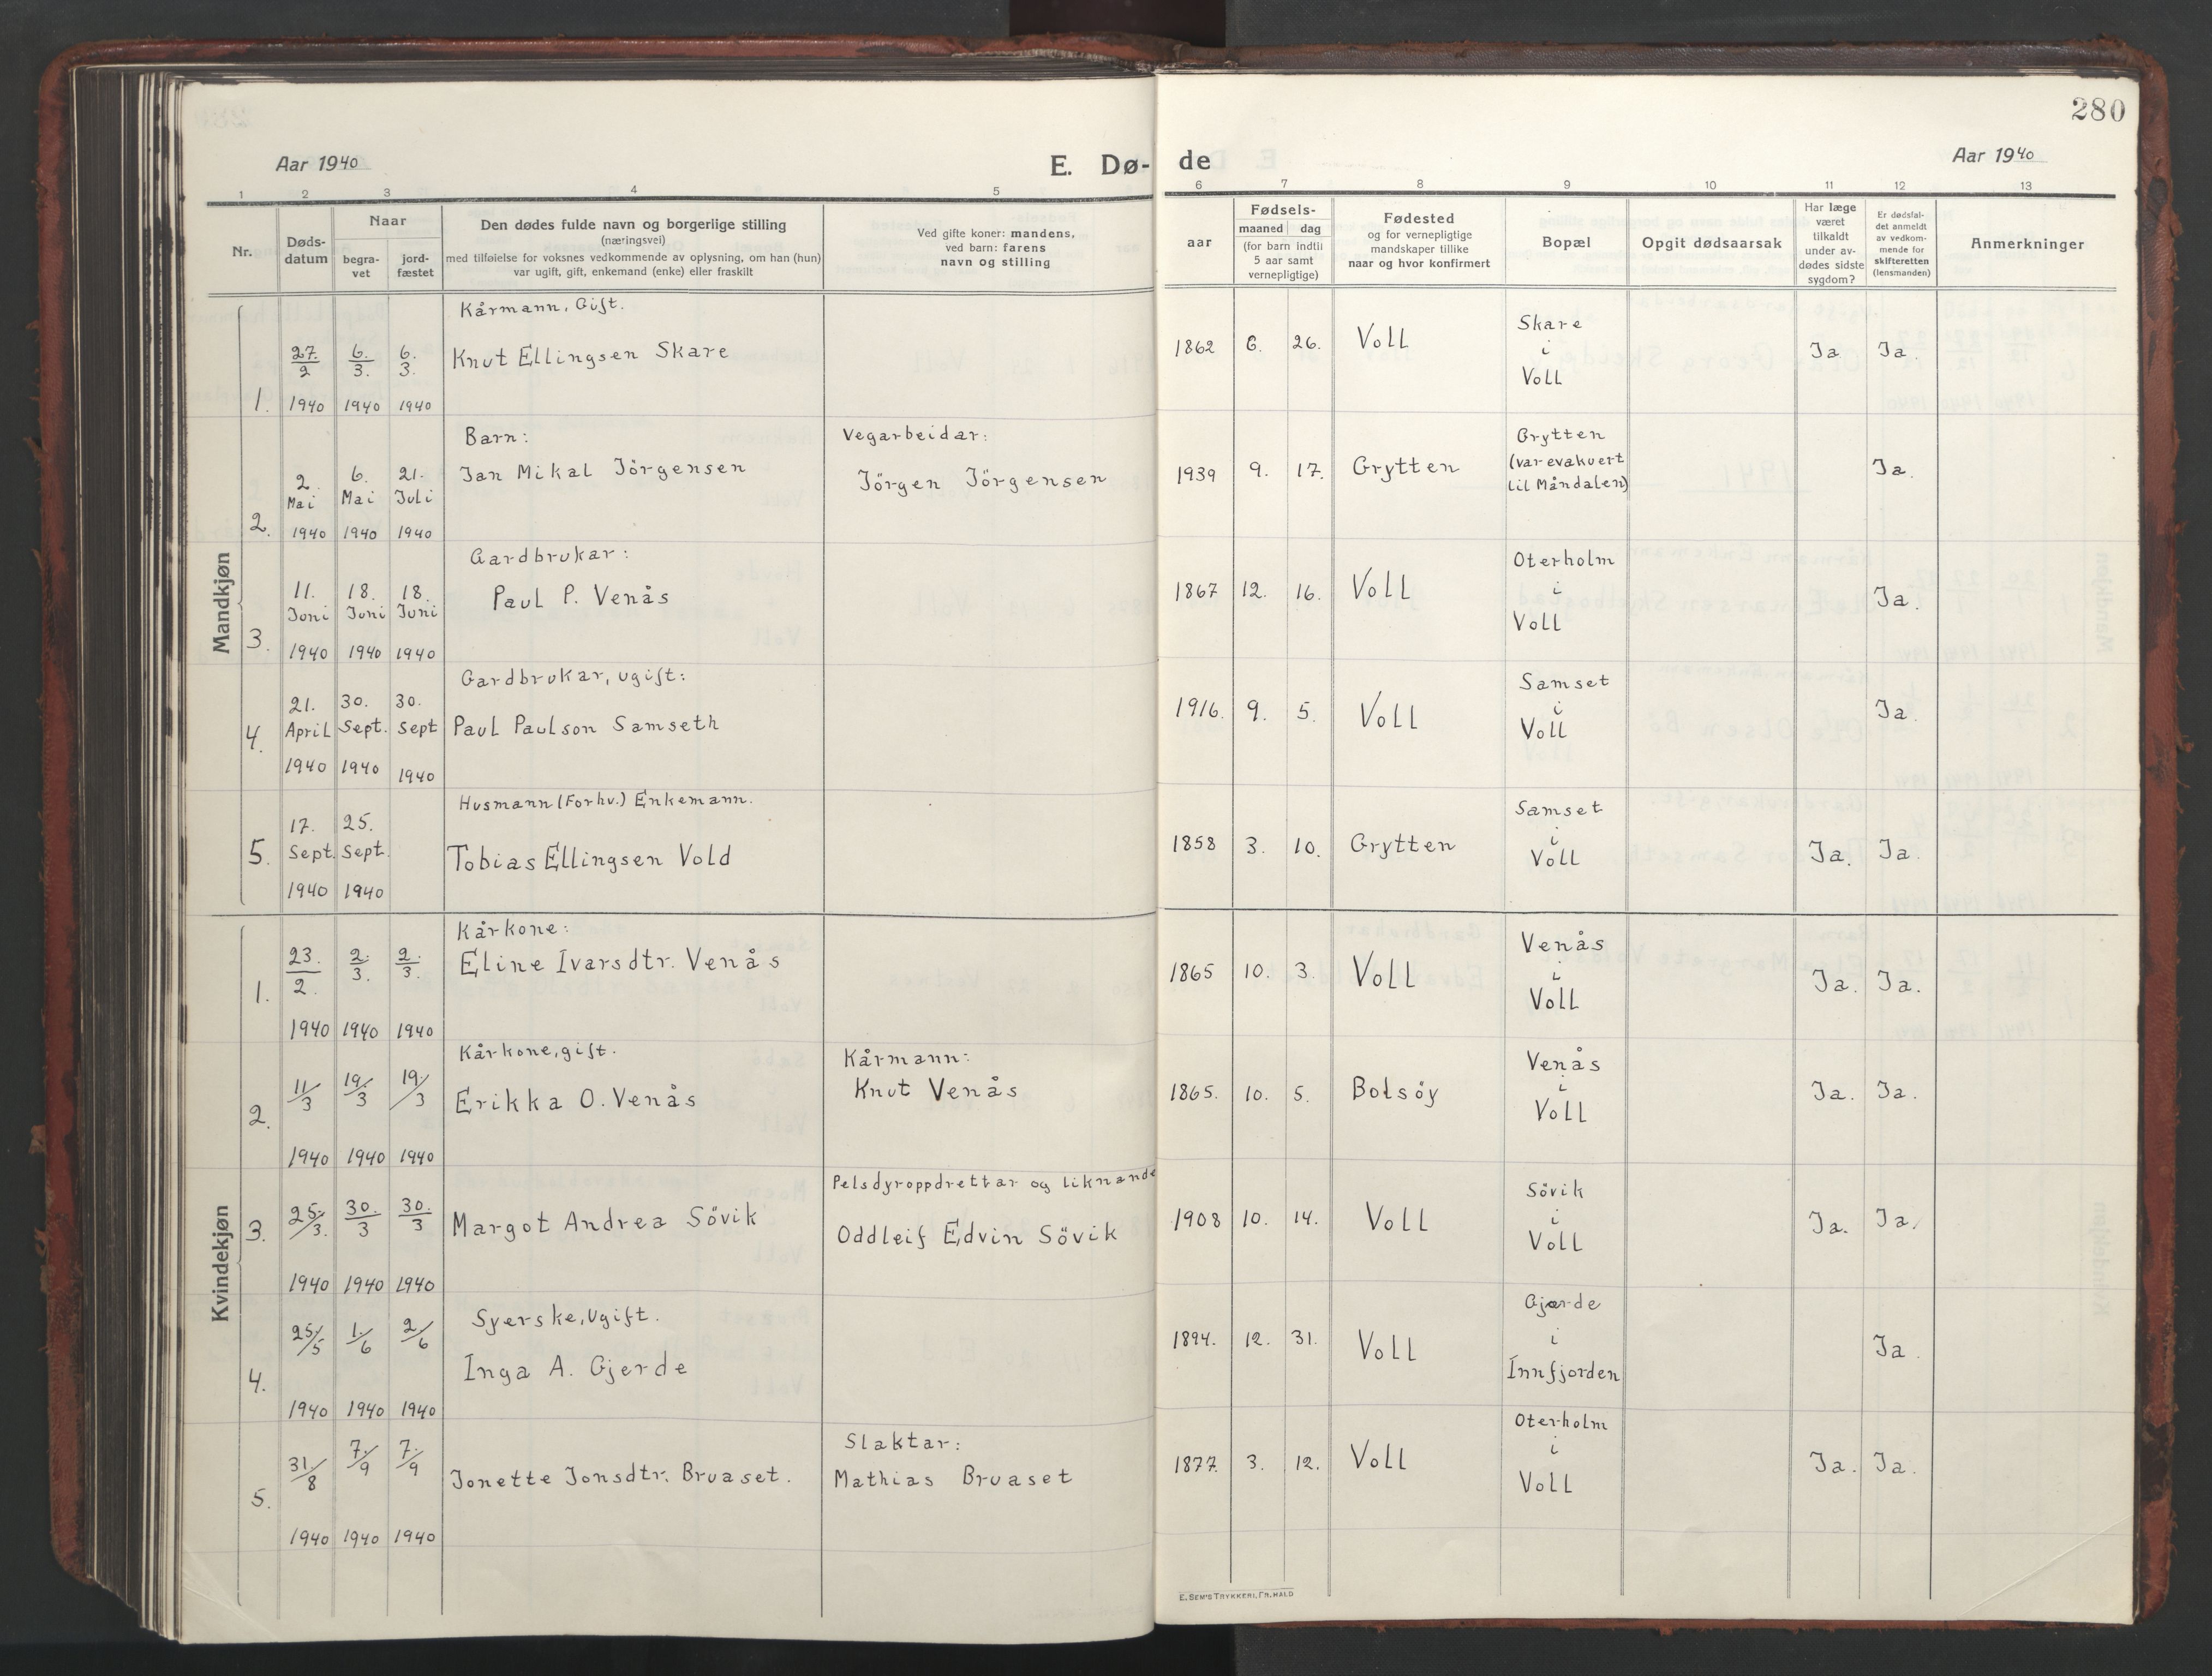 280
Aar 1940
E. Dø-
de
Aar 1940
1 2 3 4 5 6 7 8 9 10 11 12 13
Nr.
Døds-
datum
Naar
begra-
vet
jord-
fæstet
Den dødes fulde navn og borgerlige stilling
(næringsvei)
med tilføielse for voksnes vedkommende av oplysning, om han (hun)
var ugift, gift, enkemand (enke) eller fraskilt
Ved gifte koner: mandens,
ved barn: farens
navn og stilling
aar
Fødsels-
maaned dag
(for barn indtil
5 aar samt
vernepligtige)
Fødested
og for vernepligtige
mandskaper tillike
naar og hvor konfirmert
Bopæl
Opgit dødsaarsak
Har læge
været
tilkaldt
under av-
dødes sidste
sygdom?
Er dødsfal-
det anmeldt
av vedkom-
mende for
skifteretten
(lensmanden)
Anmerkninger
Mandkjøn
1.
27./2 1940
6./3. 1940
6./3. 1940
Kårmann, Gift.
Knut Ellingsen Skare
1862 6. 26. Voll
Skare
i
Voll
Ja Ja.
2.
2. Mai 1940
6. Mai 1940
21. Juli 1940
Barn:
Jan Mikal Jörgensen
Vegarbeidar:
Jörgen Jörgensen
1939 9. 17. Grytten
Grytten
(var evakuert
til Måndalen)
Ja.
3.
11. Juni 1940
18. Juni 1940
18. Juni 1940
Gardbrukar:
Paul P. Venås
1867 12. 16. Voll
Oterholm
i
Voll
Ja.
4.
21. April 1940
30. Sept. 1940
30. Sept 1940
Gardbrukar, ugift:
Paul Paulson Samseth
1916. 9. 5. Voll
Samset
i
Voll
Ja.
5.
17. Sept. 1940
25. Sept. 1940
Husmann (Forhv.) Enkemann.
Tobias Ellingsen Vold
1858 3. 10. Grytten
Samset
i
Voll
Ja. Ja.
Kvindekjøn
1.
23./2. 1940
2./3. 1940
2./3. 1940
Kårkone:
Eline Ivarsdtr. Venås
1865 10. 3. Voll
Venås
i
Voll
Ja. Ja.
2.
11/3 1940
19./3 1940
19./3 1940
Kårkone, gift.
Erikka O. Venås
Kårmann:
Knut Venås
1865. 10. 5. Bolsöy
Venås
i
Voll
Ja. Ja.
3.
25./3. 1940
30./3 1940
30./3 1940
Margot Andrea Sövik
Pelsdyroppdrettar og liknande
Oddleif Edvin Sövik
1908 10. 14. Voll
Sövik
i
Voll
Ja. Ja.
4.
25./5 1940
1./6 1940
2/6 1940
Syerske, Ugift.
Inga A. Gjerde
1894. 12. 31. Voll
Gjærde
i
Innfjorden
Ja.
5.
31/8 1940
7./9 1940
7./9 1940
Jonette Jonsdtr. Bruaset.
Slaktar:
Mathias Bruaset
1877. 3. 12. Voll
Oterholm
i
Voll
Ja. Ja.
E. SEM'S TRYKKERI, FR.HALD